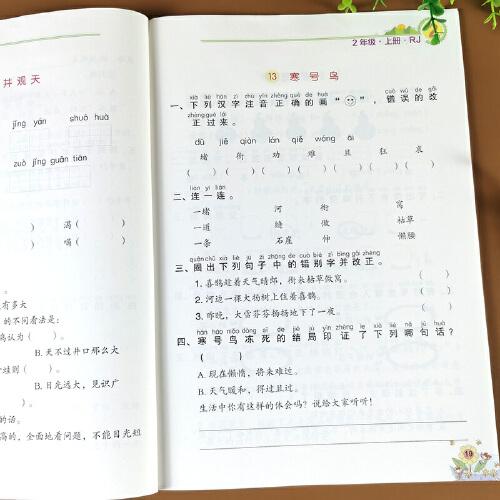 井 观 天
jǐng yán shuō huà
zuò jǐng guān tiān
) 渴( )
) 喝( )
有多大
的不同看法是:
高认为( )。
B. 天不过井口那么大
蛙则( )。
B. 目光远大,见识广
的话。
高的,全面地看问题,不能目光短
2年级·上册·RJ
13 寒 号 鸟
xià liè hàn zì zhù yīn zhèng què de huà cuò wù de gǎi
一、下 列 汉 字 注 音 正 确 的 画 “ ”,错 误 的 改
zhèng guò lái
正 过 来 。
dǔ jiē qiàn lán qiě wáng āi
堵 衔 劝 难 且 狂 哀
( ) ( ) ( ) ( ) ( ) ( ) ( )
lián yi lián
二、连 一 连。
一堵 河 衔 窝
一道 缝 做 枯草
一条 石崖 伸 懒腰
quān chū xià liè jù zi zhōng de cuò bié zì bìng gǎi zhèng
三、圈 出 下 列 句 子 中 的 错 别 字 并 改 正 。
1. 喜鹊趁着天气晴郎,衔来枯草做窝。 ( )
2. 河边一棵大杨树上住着喜鹊。 ( )
3. 昨晚,大雪芬芬扬扬地下了一夜。 ( )
hán háo niǎo dòng sǐ de jié jú yìn zhèng le xià liè nǎ jù huà
四、寒 号 鸟 冻 死 的 结 局 印 证 了 下 列 哪 句 话 ?
( )
A. 现在懒惰,将来难过。
B. 天气暖和,得过且过。
生活中你有这样的体会吗?说给大家听听!
19